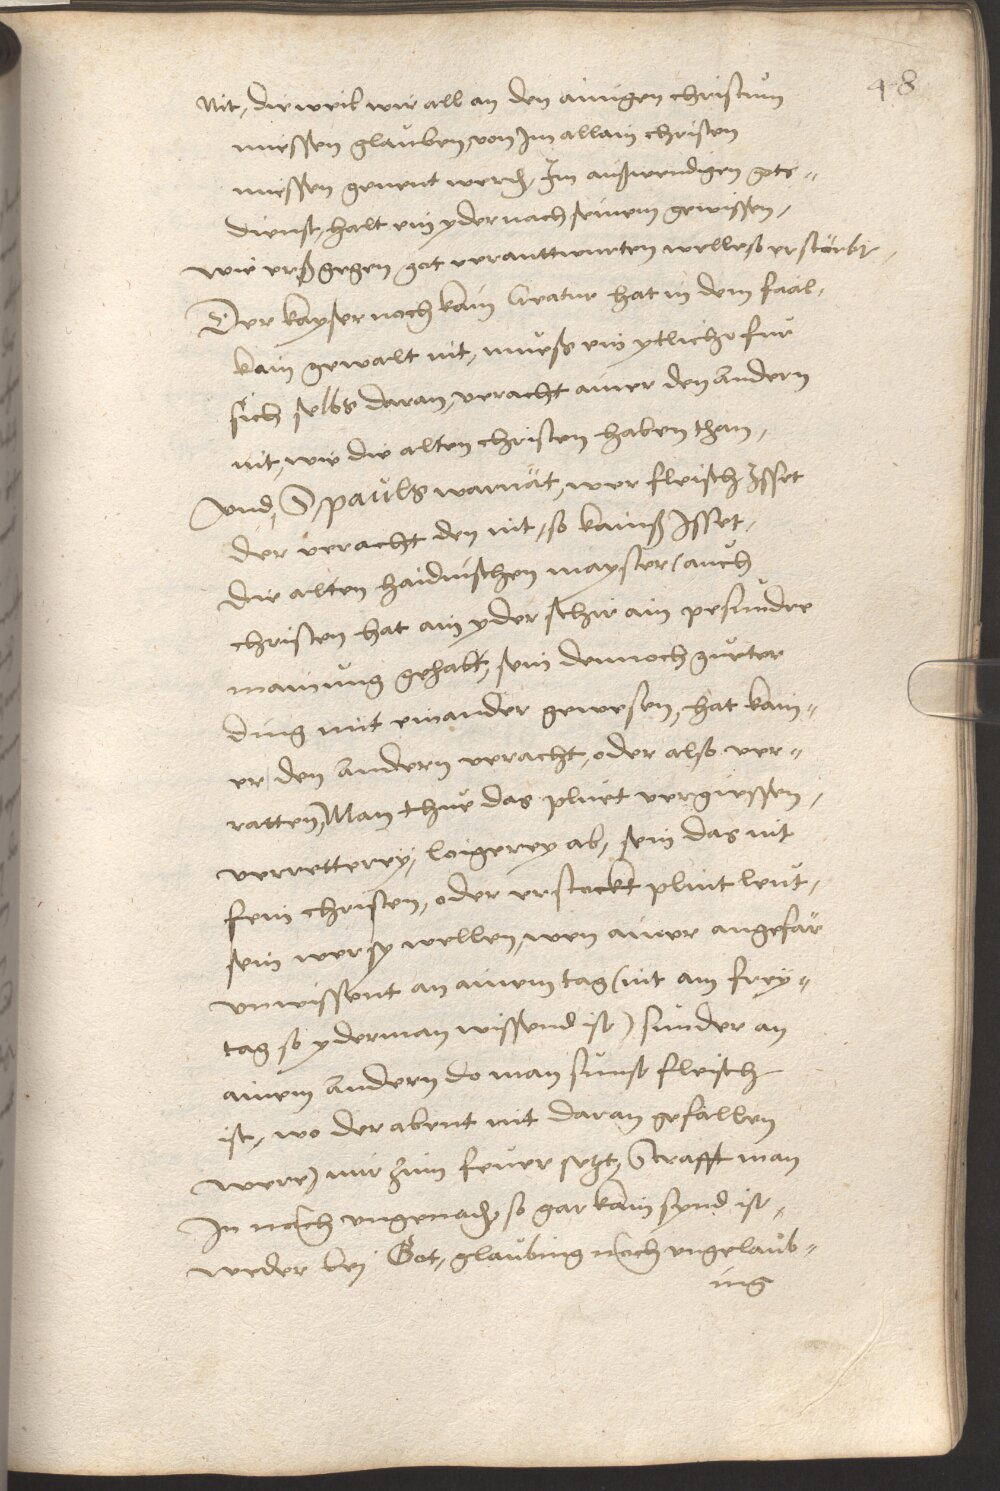 48
Nit, dieweil wir all an den ainigen christum
miessen glauben, von Im allain christen
miessen genent werden, Im außwendigen gots=
dienst, halt ein yder nach seinem gewissen,
wie ers gegen got verantwurten welle so er stürbt,
Der kayser noch kain Creatur hat in dem faal,
kain gewalt nit, mueß ein ytlicher fur
sich selbs daran, veracht ainer den Andern
nit, wie die alten christen haben than,
Und, S, pauls warnät, wer fleisch Isset
der veracht den nit, so kainß Isset,
Die alten haidnischen mayster (auch
christen hat ain yder schir ain pesundre
mainung gehabt, sein dennoch gueter
ding mit einander gewesen, hat kain=
er den Andern veracht, oder also ver=
ratten, Man thue das pluet vergiessen,
verretterey, loigerey ab, sein das nit
fein christen, oder ersteckt plint leut,
sein wer sy wellen, wen ainer angefär
unwissent an ainem tag (nit am frey=
tag so yderman wissend ist) sunder an
ainem Andern do man sunst fleisch
ist, wo der abent nit daran gefallen
were) nur zum feuer setzt, Strafft man
In nach ungenaden so gar kain synd ist,
weder bej Got, glaubing noch ungelaub=
ing